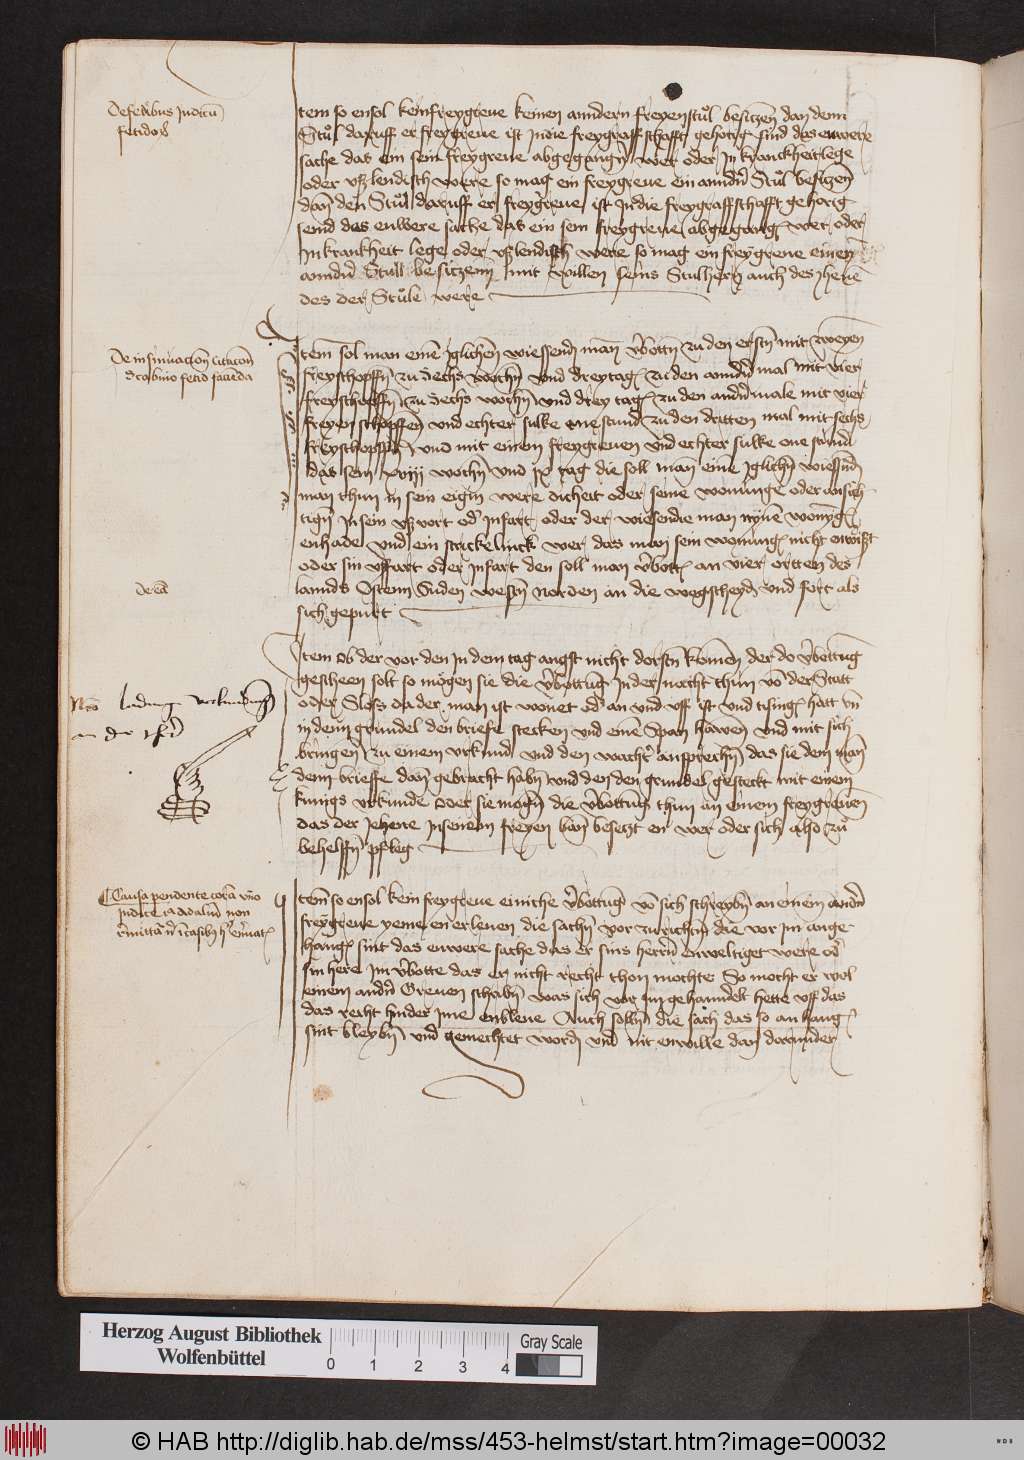 De sedibus Judicu
Item so ensol kein freygreue keinen anndern freyenstul besitzen dan dem
Stul daruff er freygreue ist in die freygraffschafft gehorig sind das enwere
sache das ein sein freygreue abgegangn wer oder In kranckheit lege
oder vßlendisch were so mag ein freygreue ein anndn Stul besitzen
dan den Stul daruff er freygreue ist In die freygraffschafft gehorig
seind das enwere sache das ein sein freygreue abgegang wer oder
In krankheit lege oder vßlendisch were so mag ein freygreue einen
anndn Stull besitzenn mit willen seins Stulhern auch des Jhenen
des der Stule were
De insinuacion citacion
Item sol man eine Iglichen wiessend man vbottn zu den ersten mit zweyen
freyschopffn zu Sechs wochn vnd drey tag zu den anndn mal mit vier
freyschopffn zu Sechs wochn vnd drey tag zu den andn male mit vier
freyen schopffen vnd echter sulke one stund zu den dritten mal mit sechs
freyschopffn vnd mit einem freygreuen vnd echter sulke one stund
das sein xviij wochn vnd ix tag die soll man eine Iglichn wiessnd
man thun in sein eigin were dicheit oder seine wonunge oder ansich
tign In sein vßvort od Infart oder der wiesende man nyne wonyg
enhade vnd ein strickelinck wer das man sein wonung nicht enwißt
oder sin vffart oder Infart den soll man vbott an vier ortten des
lannds Ostenn Suden westn norden an die wegscheyd vnd fort als
sich gepurt
Item Ob der vor den In dem tag angst nicht dorstn komen der do vbottug
gescheen solt so mogen sie die vbottug In der nacht thun vo der Statt
oder Sloss da der man ist wonet od an vnd vff ist vnd tising hatt vn
in den grindel den briefe stecken vnd eine Span hawen vnd mit sich
bringen zu einem vrkund vnd den wachtr ansprechn das sie dem man
denn brieffe dan gebracht habn vnd den den grundel gesteckt mit einem
kunigs vrkunde Oder sie mogn die vbottug thun an einem freygreuen
das der Jehene In seinem freyen ban besetzt en wer oder sich also zu
behelffn pfleg
Causa pendente cora vno
Judice
Item so ensol kein freygreue einiche vbottung vo sich schreybn an einem andn
freygreue yeme en erleuen die sachn vor zurichtn die vor im ange
hang sint das enwere sache das er sins hern enweltiget were od
sin here im vbotte das er nicht recht thon mochte So mocht er wol
einem andn Greuen schribn was sich vor im gehanndelt hette vff das
das recht hinder ime enbleue Auch solln die sach das so an hang
sint bleybn vnd gemechtet word vnd nit enwille dan darunder
Herzog August Bibliothek
Wolfenbüttel
0 1 2 3 4
Gray Scale
© HAB http://diglib.hab.de/mss/453-helmst/start.htm?image=00032